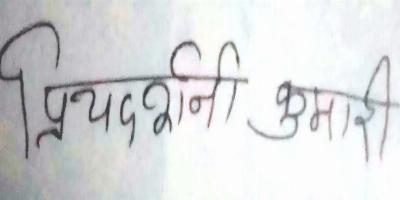 प्रियदर्शनी कुमारी